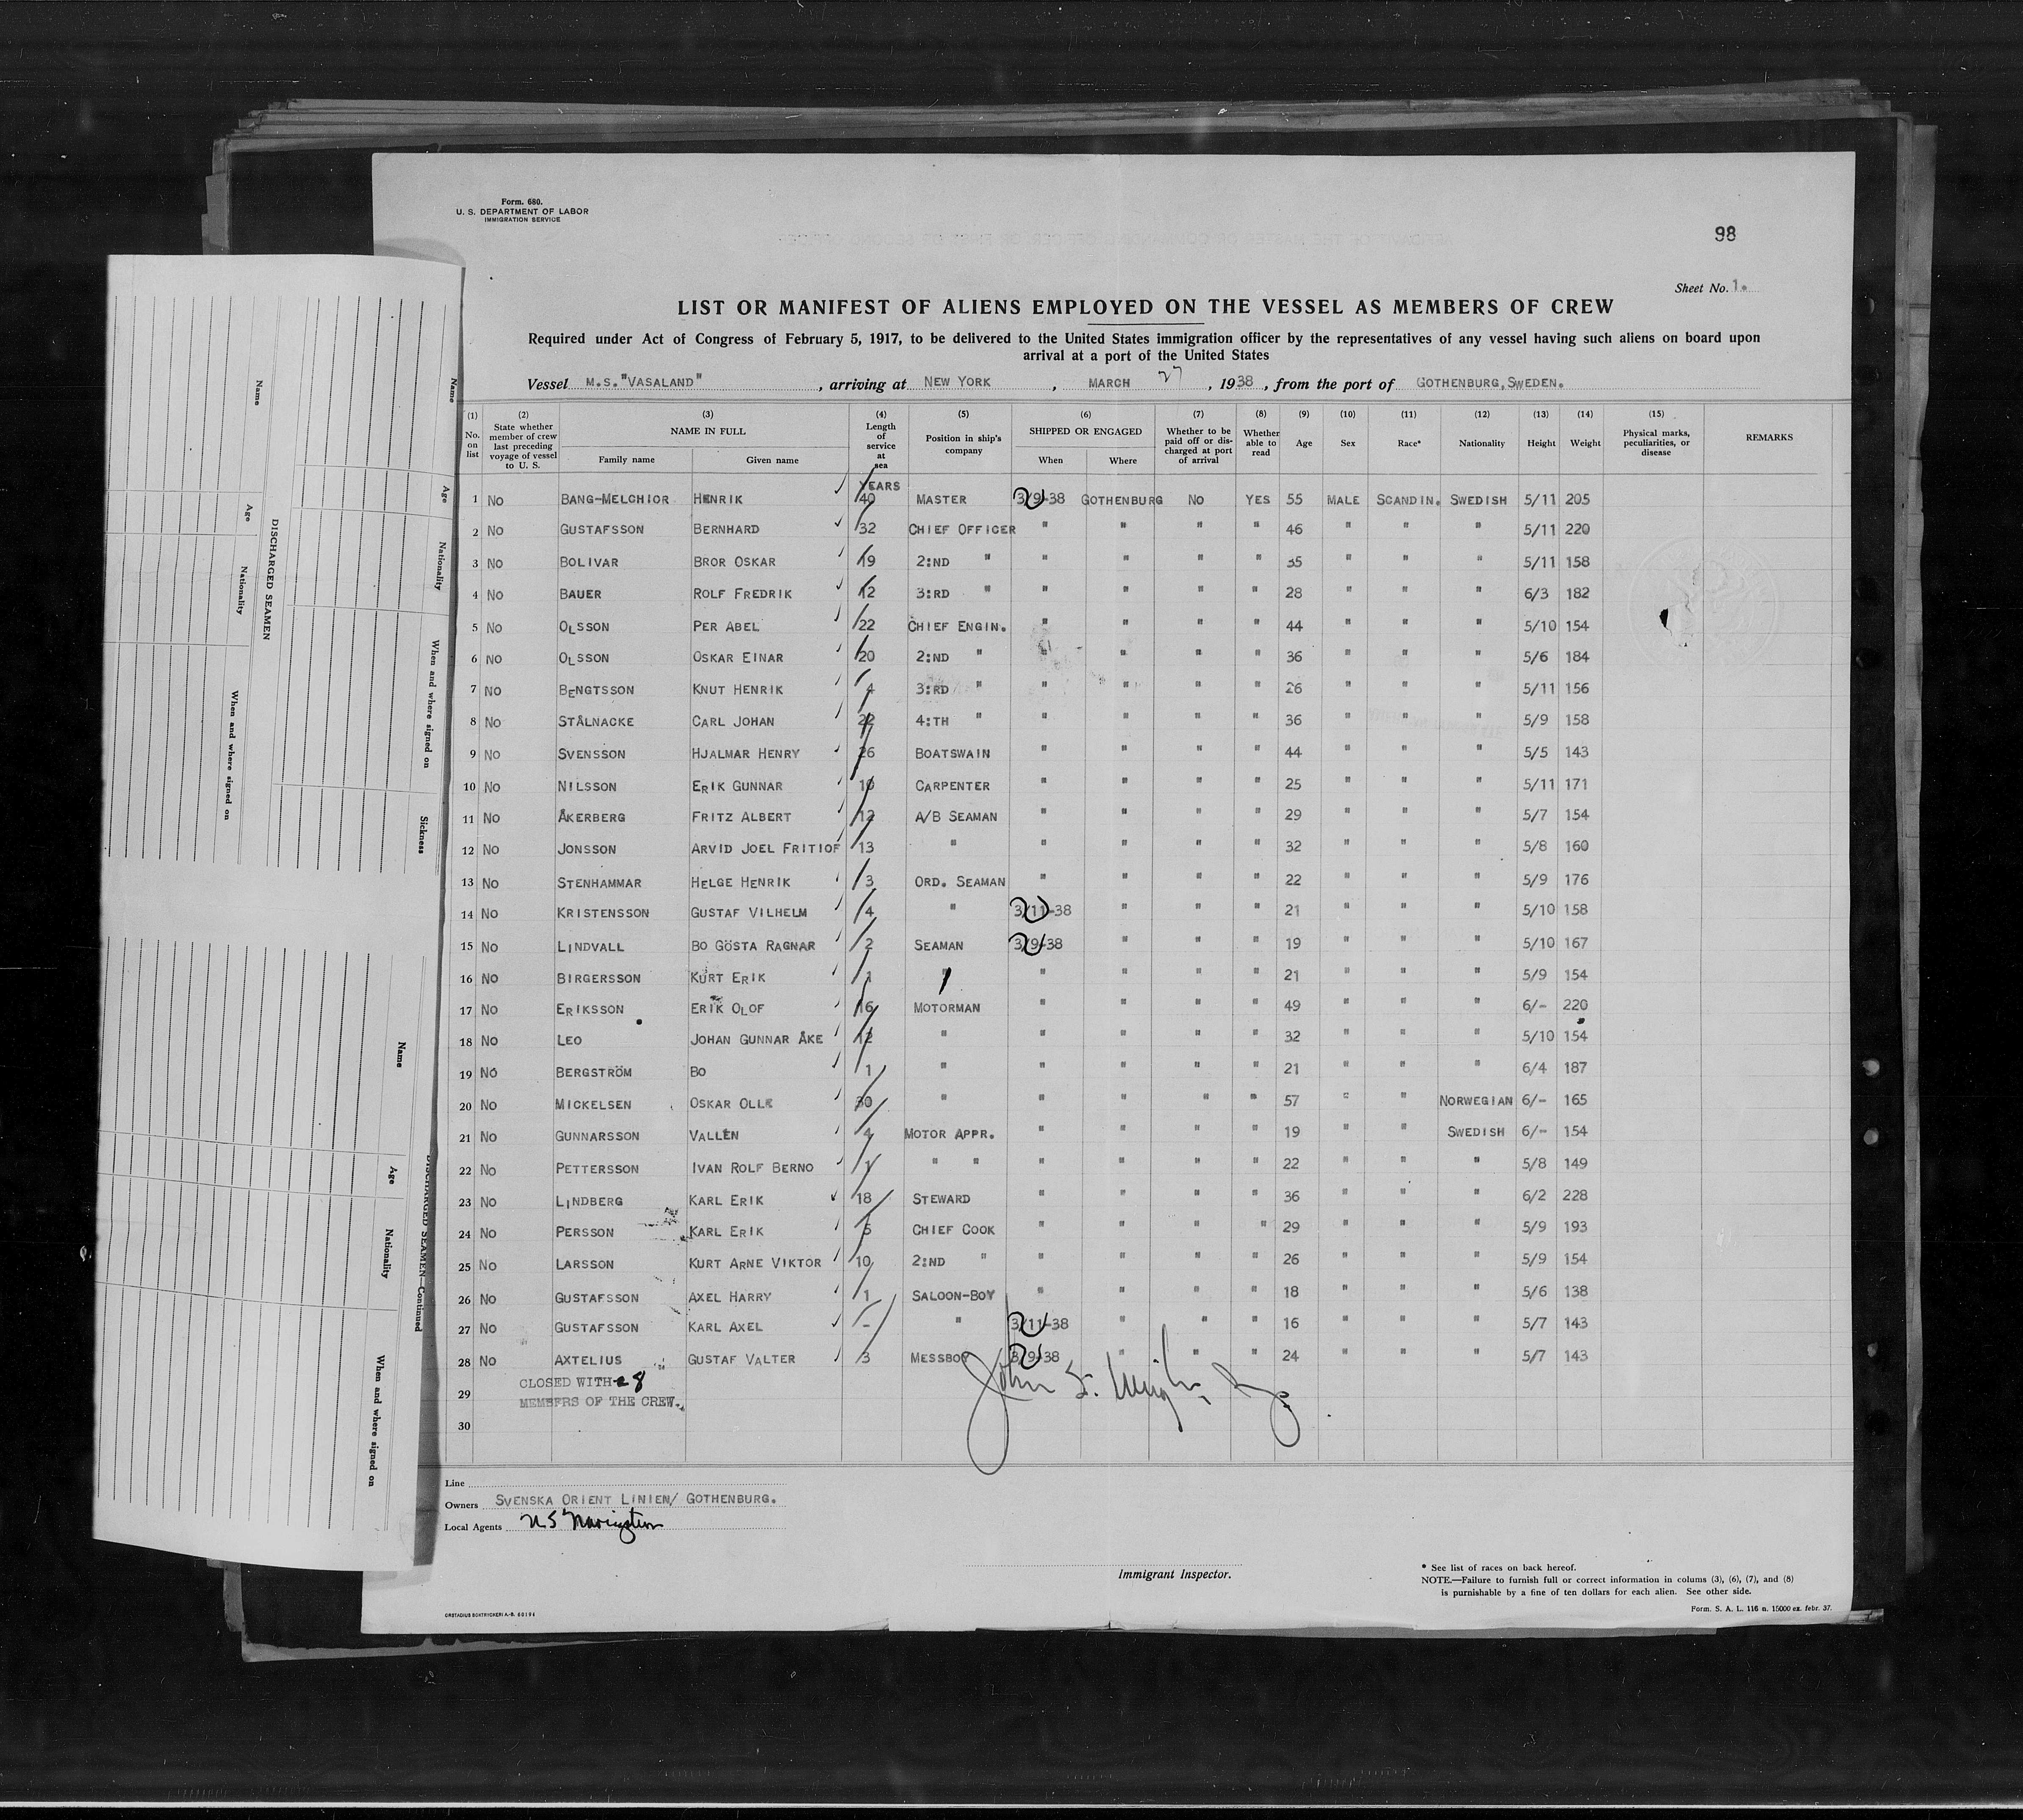 Form. 680.
U. S. DEPARTMENT OF LABOR
IMMIGRATION SERVICE
98
Sheet No. 1.
LIST OR MANIFEST OF ALIENS EMPLOYED ON THE VESSEL AS MEMBERS OF CREW
Required under Act of Congress of February 5, 1917, to be delivered to the United States immigration officer by the representatives of any vessel having such aliens on board upon
arrival at a port of the United States
Vessel M.S. "VASALAND", arriving at NEW YORK, MARCH 27, 1938, from the port of GOTHENBURG, SWEDEN.
(1) (2) (3) (4) (5) (6) (7) (8) (9) (10) (11) (12) (13) (14) (15)
No. on list State whether member of crew last preceding voyage of vessel to U. S. NAME IN FULL Length of service at sea Position in ship's company SHIPPED OR ENGAGED Whether to be paid off or discharged at port of arrival Whether able to read Age Sex Race* Nationality Height Weight Physical marks, peculiarities, or disease REMARKS
Family name Given name When Where
YEARS
1 NO BANG-MELCHIOR HENRIK 40 MASTER 3/9-38 GOTHENBURG NO YES 55 MALE SCANDIN. SWEDISH 5/11 205
2 NO GUSTAFSSON BERNHARD 32 CHIEF OFFICER " " " " 46 " " " 5/11 220
3 NO BOLIVAR BROR OSKAR 19 2:ND " " " " " 35 " " " 5/11 158
4 NO BAUER ROLF FREDRIK 12 3:RD " " " " " 28 " " " 6/3 182
5 NO OLSSON PER ABEL 22 CHIEF ENGIN. " " " " 44 " " " 5/10 154
6 NO OLSSON OSKAR EINAR 20 2:ND " " " " " 36 " " " 5/6 184
7 NO BENGTSSON KNUT HENRIK 4 3:RD " " " " " 26 " " " 5/11 156
8 NO STÅLNACKE CARL JOHAN 22 4:TH " " " " " 36 " " " 5/9 158
9 NO SVENSSON HJALMAR HENRY 26 BOATSWAIN " " " " 44 " " " 5/5 143
10 NO NILSSON ERIK GUNNAR 10 CARPENTER " " " " 25 " " " 5/11 171
11 NO ÅKERBERG FRITZ ALBERT 12 A/B SEAMAN " " " " 29 " " " 5/7 154
12 NO JONSSON ARVID JOEL FRITIOF 13 " " " " " 32 " " " 5/8 160
13 NO STENHAMMAR HELGE HENRIK 3 ORD. SEAMAN " " " " 22 " " " 5/9 176
14 NO KRISTENSSON GUSTAF VILHELM 4 " 3/11-38 " " " 21 " " " 5/10 158
15 NO LINDVALL BO GÖSTA RAGNAR 2 SEAMAN 3/9-38 " " " 19 " " " 5/10 167
16 NO BIRGERSSON KURT ERIK 1 " " " " " 21 " " " 5/9 154
17 NO ERIKSSON ERIK OLOF 16 MOTORMAN " " " " 49 " " " 6/- 220
18 NO LEO JOHAN GUNNAR ÅKE 12 " " " " " 32 " " " 5/10 154
19 NO BERGSTRÖM BO 1 " " " " " 21 " " " 6/4 187
20 NO MICKELSEN OSKAR OLLE 30 " " " " " 57 " " NORWEGIAN 6/- 165
21 NO GUNNARSSON VALLÉN 4 MOTOR APPR. " " " " 19 " " SWEDISH 6/- 154
22 NO PETTERSSON IVAN ROLF BERNO 1 " " " " " " 22 " " " 5/8 149
23 NO LINDBERG KARL ERIK 18 STEWARD " " " " 36 " " " 6/2 228
24 NO PERSSON KARL ERIK 5 CHIEF COOK " " " " 29 " " " 5/9 193
25 NO LARSSON KURT ARNE VIKTOR 10 2:ND " " " " " 26 " " " 5/9 154
26 NO GUSTAFSSON AXEL HARRY 1 SALOON-BOY " " " " 18 " " " 5/6 138
27 NO GUSTAFSSON KARL AXEL - " 3/11-38 " " " 16 " " " 5/7 143
28 NO AXTELIUS GUSTAF VALTER 3 MESSBOY 3/9-38 " " " 24 " " " 5/7 143
29 CLOSED WITH 28
MEMBERS OF THE CREW.
30
Line
Owners SVENSKA ORIENT LINIEN/ GOTHENBURG.
Local Agents U S Navigation
Immigrant Inspector.
* See list of races on back hereof.
NOTE.—Failure to furnish full or correct information in colums (3), (6), (7), and (8)
is punishable by a fine of ten dollars for each alien. See other side.
ORSTADIUS BOKTRYCKERI A.-B. 60194
Form. S. A. L. 116 n. 15000 ex. febr. 37.
Name
Age
Nationality
When and where signed on
Sickness
DISCHARGED SEAMEN
Name
Age
Nationality
When and where signed on
DISCHARGED SEAMEN—Continued
Name
Age
Nationality
When and where signed on